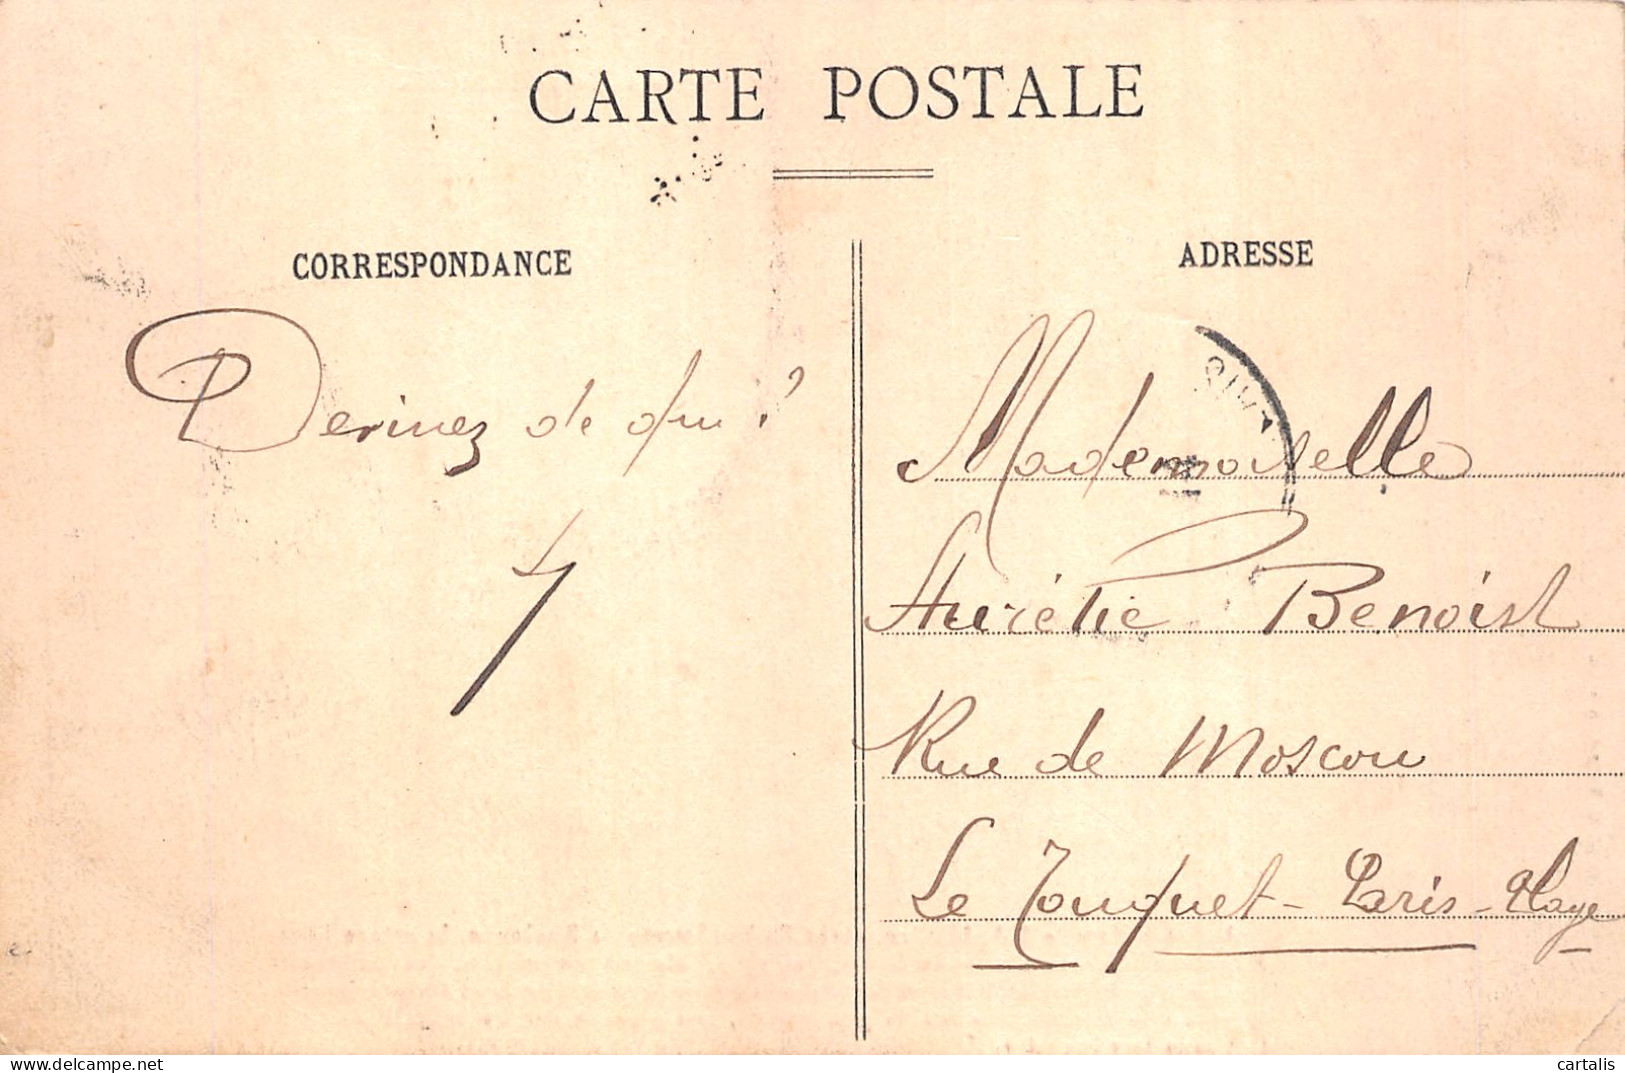 CARTE POSTALE
CORRESPONDANCE
Devinez de qui ?
ADRESSE
Mademoiselle
Aurélie Benoist
Rue de Moscou
Le Touquet - Paris - Plage
cartalis